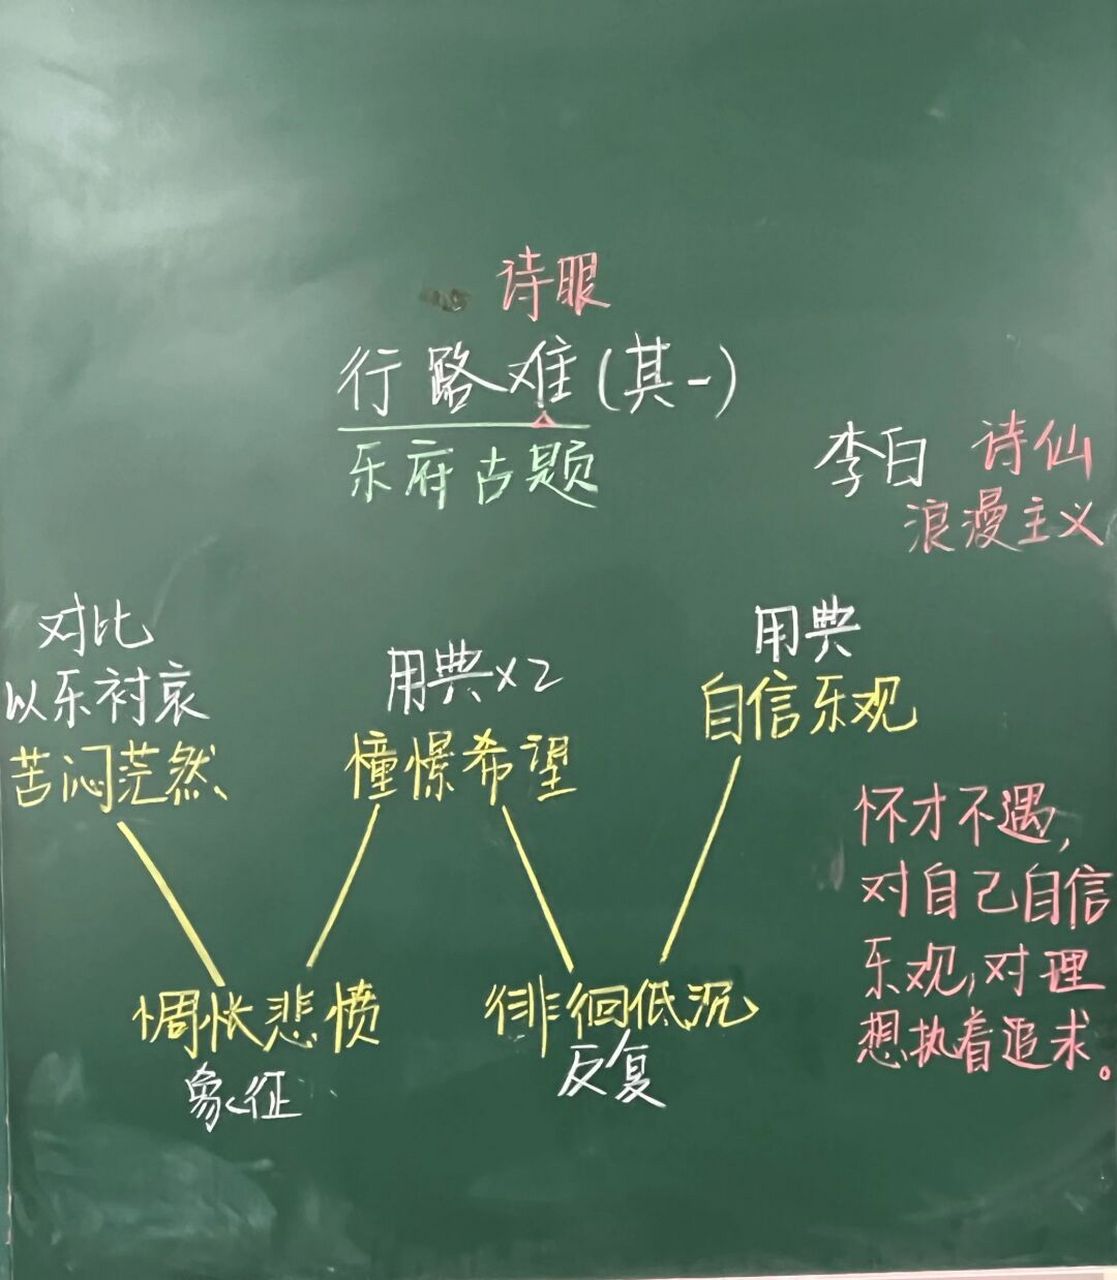 诗眼
行路难(其一)
乐府古题
李白 诗仙
浪漫主义
对比
以乐衬哀
苦闷茫然
用典×2
憧憬希望
用典
自信乐观
惆怅悲愤
象征
徘徊低沉
反复
怀才不遇,
对自己自信
乐观,对理
想执着追求。